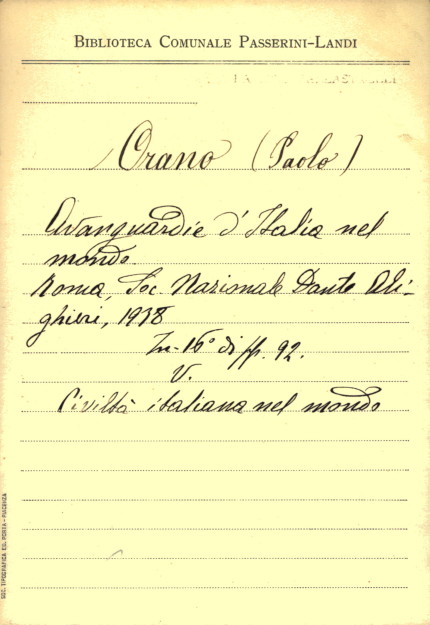 BIBLIOTECA COMUNALE PASSERINI-LANDI
Orano (Paolo)
Avanguardie d'Italia nel
mondo
Roma, Soc. Nazionale Dante Ali-
ghieri, 1938
In-16° di pp. 92.
V.
Civiltà italiana nel mondo
SOC. TIPOGRAFICA ED. PORTA - PIACENZA